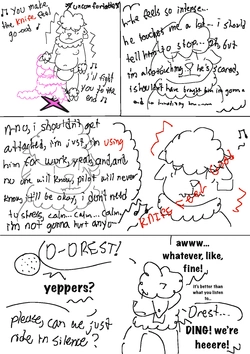 ♪ You make
the knife feel
good... ♪
*uncomfortable*
♪ i'll fight
you to
the end ♪
he feels so intense...
he touches me a lot.. i should
tell him to stop...
im
he's scared,
i
shouldn't have brought him
n-no, i shouldn't get
attached, i'm just, im using
him for work, yeah, and, and
no one will know, pilot will never
know, it'll be okay, i don't need
to stress, calm... calm... calm,
i'm not gonna hurt any
KNIFE FEEL GOOD
O-OREST!
yeppers?
please, can we just
ride in silence?
awww...
whatever, like,
fine!
it's better than
what you listen
to...
Orest...
DING! we're
heeere!